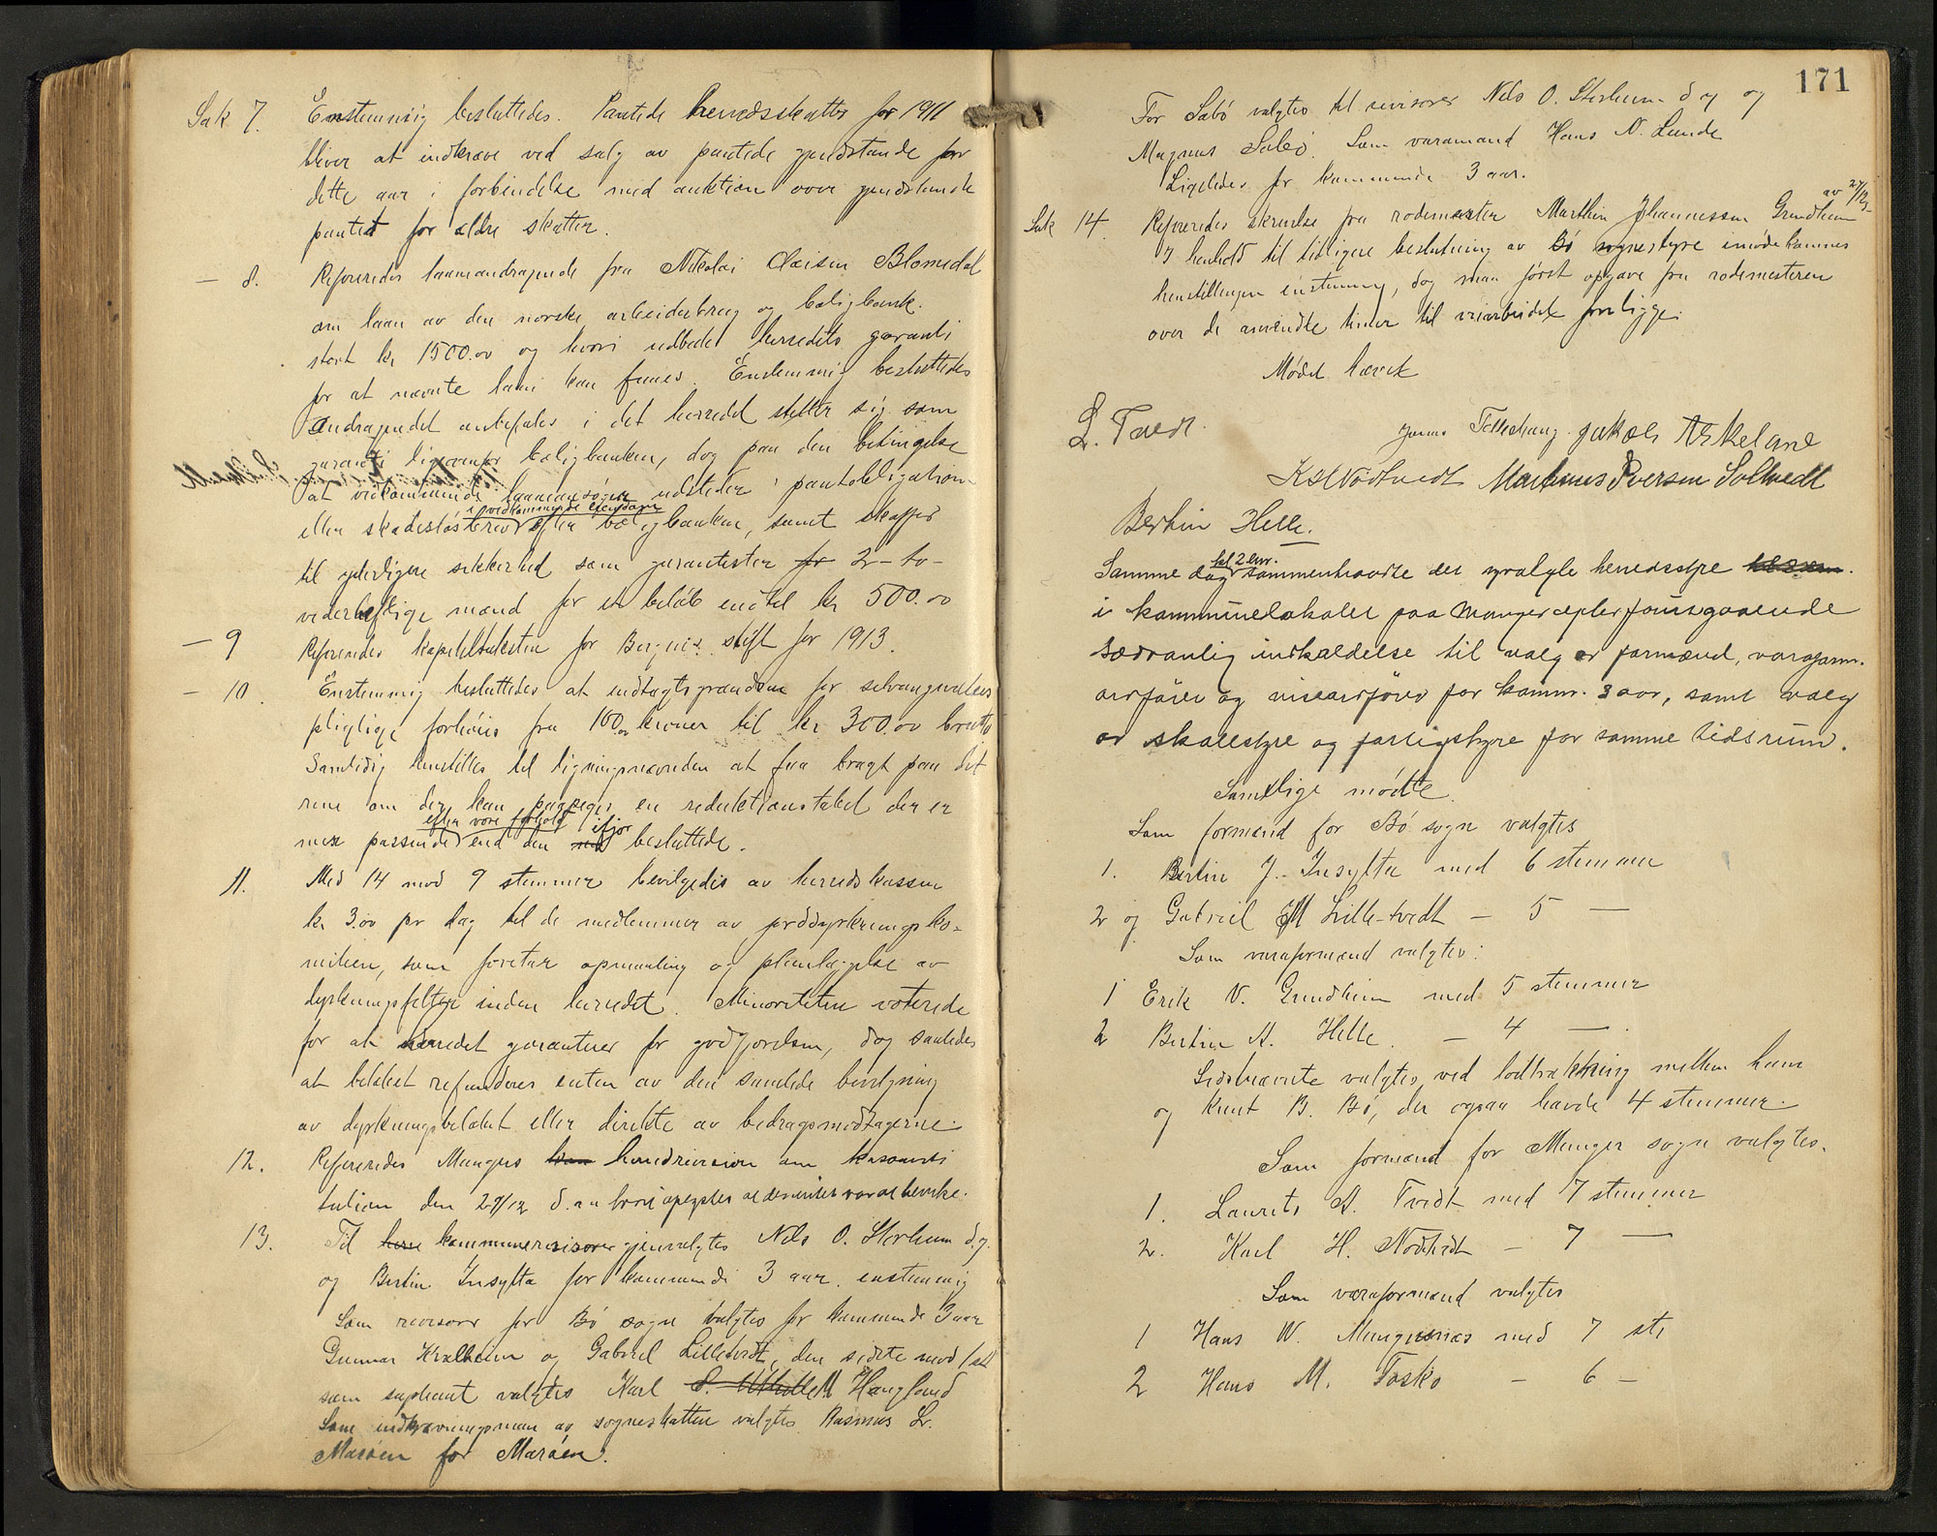 Sak 7. Enstemmig besluttedes. Pantede herredsskatter for 1911
bliver at indkræve ved salg av pantede gjenstande for
dette aar i forbindelse med auktion over gjenstande
pantet for ældre skatter.
— 8. Refereredes laaneandragende fra Nikolai Claisen Blomedal
om laan av den norske arbeiderbrug og boligbank.
stort kr 1500.00 og hvori udbedes herredets garanti
for at nævnte laan kan faaes. Enstemmig besluttedes
Andragendet anbefales i det herredet stiller sig som
garanti ligeoverfor boligbanken, dog paa den betingelse
at vedkommende laaneansøger udsteder pantobligation
i vedkommende eiendom
eller skadesløsbrev efter boligbanken, samt skaffer
til yderligere sikkerhed som garantister for 2 - to -
vederheftige mænd for et beløb indtil kr 500.00
— 9 Refereredes kapitelstaksten for Bergens stift for 1913.
— 10. Enstemmig besluttedes at indtægtsgrændsen for selvangivelses
pligtige forhøies fra 100.00 kroner til kr 300.00 brutto
Samtidig henstilles til ligningsnævnden at faa bragt paa det
rene om der kan paaveges en reduktionstabel der er
efter vore forhold ifjor
mer passende end den besluttede.
11. Med 14 mod 9 stemmer bevilgedes av herredskassen
kr 3.00 pr dag til de medlemmer av jorddyrkningsko-
miteen, som foretar opmaaling og planlæggelse av
dyrkningsfelter inden herredet. Minoriteten voterede
for at herredet garanterer for godtgjørelsen, dog saaledes
at beløbet refunderes enten av den samlede bevilgning
av dyrkningsbeløbet eller direkte av bidragsmodtagerne.
12. Refereredes Mangers herredrevision om kasseinvi
sution den 27/12 d. aa hvori oplystes at desuten var at bemerke.
13. Til kommunerevisorer gjenvalgtes Nils O. Storheim d.y.
og Bertin Insylta for kommende 3 aar enstemmig
Som revisorer for Bø sogn valgtes for kommende 3 aar
Gunnar Kvalheim og Gabriel Lilletvedt, den sidste med 1 st
som suplеant valgtes Karl Haugland
Som indkrævningsmænd av sogneskatten valgtes Rasmus Lr.
Marøen for Marøen.
171
For Sæbø valgtes til revisorer Nils O. Storheim d y og
Magnus Sæbø. Som varamand Hans N. Lunde
Ligeledes for kommende 3 aar.
av 27/12
Sak 14. Refereredes skrivelse fra rodemester Marthin Johannessen Grundheim
I henhold til tidligere beslutning av Bø sognestyre imødekommes
henstillingen enstemmig, dog maa først opgave fra rodemesteren
over de anvendte timer til veiarbeidet foreligge.
Mødet hævet
L. Tvedt. Jakob Askeland
K H Nødtvedt Martinus Iversen Soltvedt
Bertin Helle.
kl 2 em.
Samme dag sammentraadte det nyvalgte herredsstyre
i kommunelokalet paa Manger efter forutgaaende
sædvanlig indkaldelse til valg av formænd, varaform.
ordfører og viseordfører for komm. 3 aar, samt valg
av skolestyre og fattigstyre for samme tidsrum.
Samtlige mødte.
Som formænd for Bø sogn valgtes
1. Bertin J. Insylta med 6 stemmer
2 og Gabriel M Lille-tvedt — 5 —
Som varaformænd valgtes:
1 Erik N. Grundheim med 5 stemmer
2 Bertin A. Helle. — 4 —
Sidstnævnte valgtes ved lodtrækning mellem ham
og Knut B. Bø, der ogsaa havde 4 stemmer.
Som formænd for Manger sogn valgtes.
1. Laurits A. Tvedt med 7 stemmer
2. Karl H. Nødtvedt — 7 —
Som varaformænd valgtes
1 Hans W. Mangersnes med 7 st,
2 Hans M. Toska — 6 —